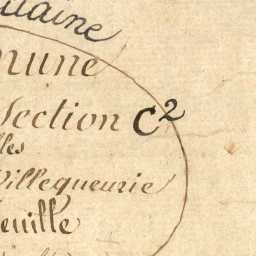 itaine
mune
Section C2
lles
Villequeurie
euille